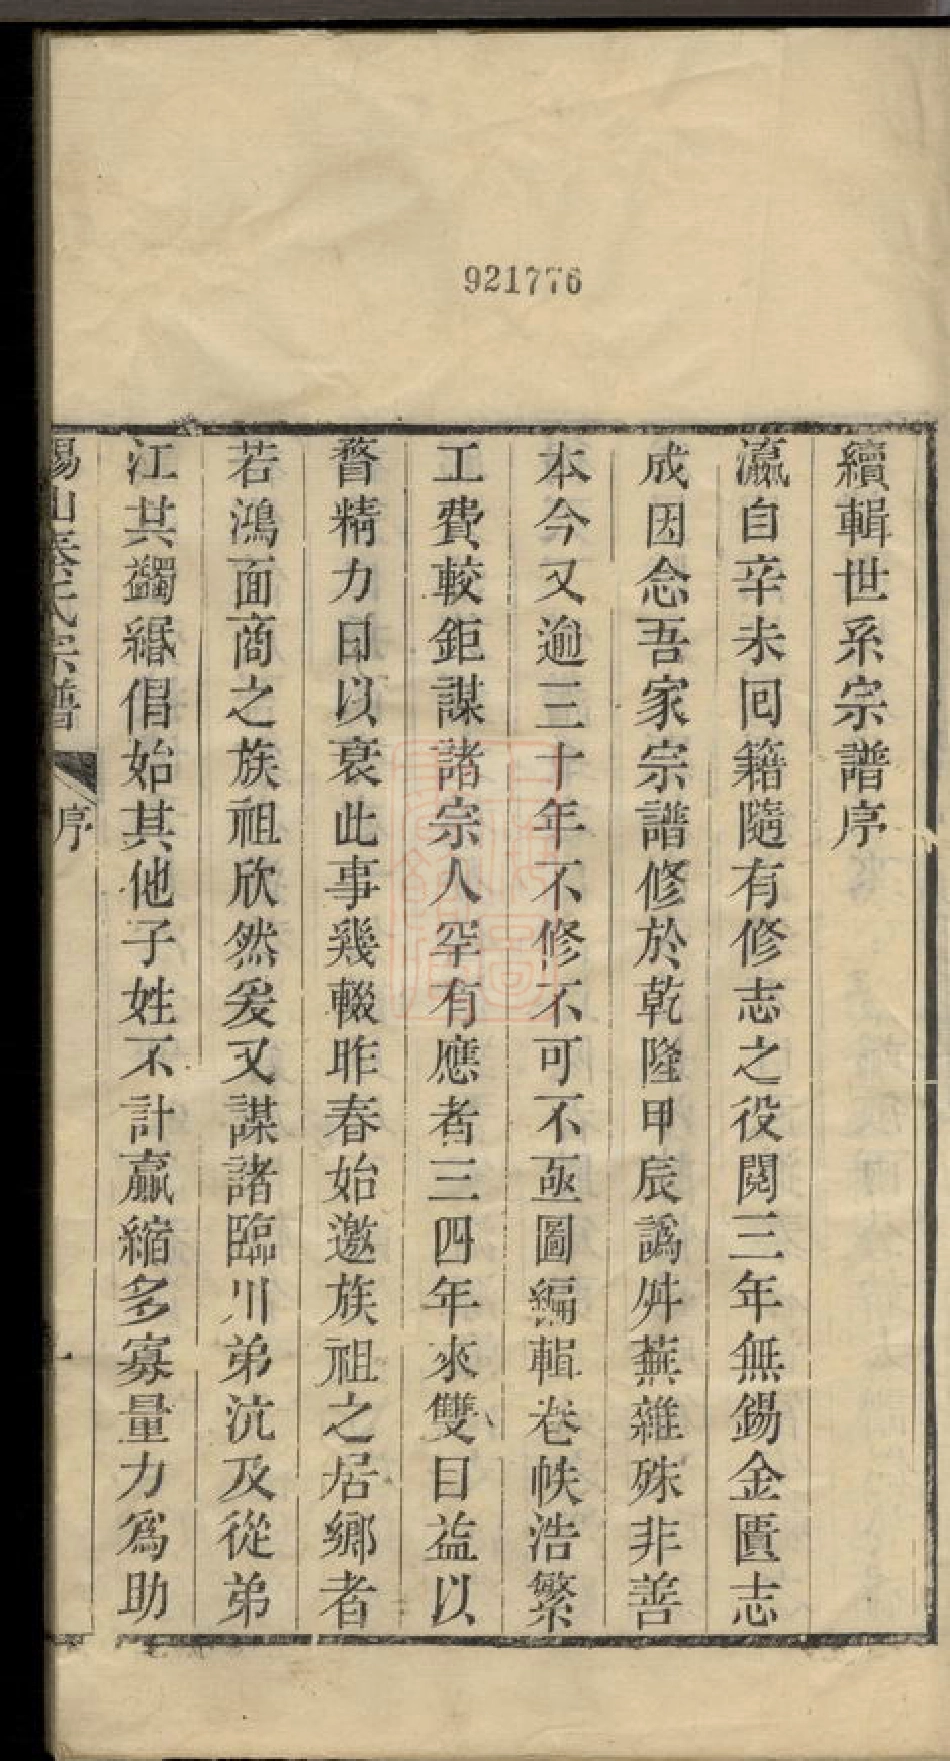 921776
續輯世系宗譜序
瀛自辛未回籍隨有修志之役閱三年無錫金匱志
成因念吾家宗譜修於乾隆甲辰譌舛蕪雜殊非善
本今又逾三十年不修不可不亟圖編輯卷帙浩繁
工費較鉅謀諸宗人罕有應者三四年來雙目益以
瞀精力日以衰此事幾輟昨春始邀族祖之居鄉者
若鴻面商之族祖欣然爰又謀諸臨川弟沆及從弟
江其蠲緡倡始其他子姓不計贏縮多寡量力爲助
錫山秦氏宗譜 序 一